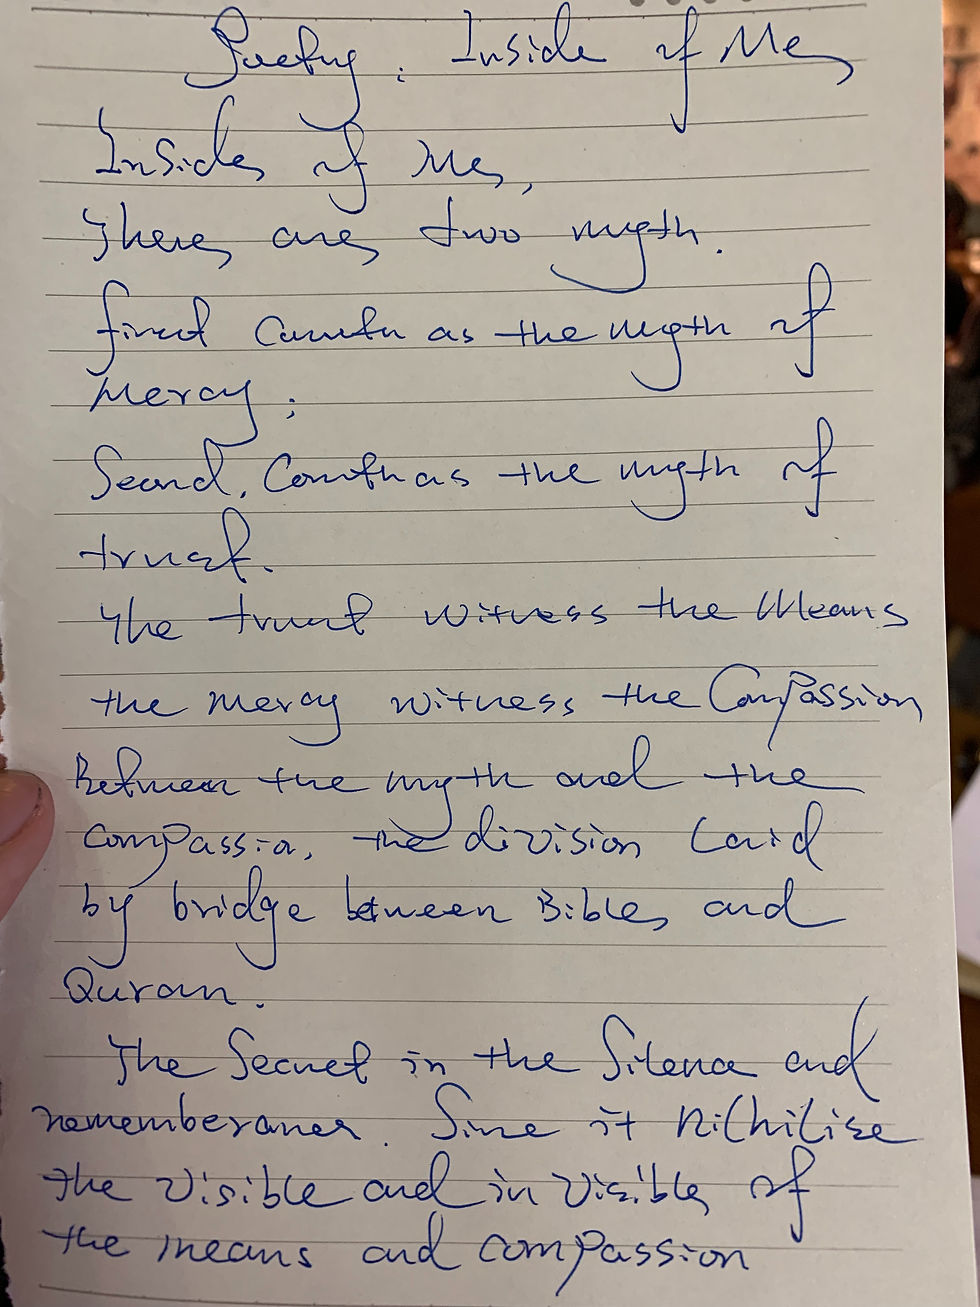 Poetry: Inside of Me
Inside of Me,
There are two myth.
first Cometh as the myth of
Mercy;
Second, Cometh as the myth of
trust.
The trust witness the Means
the mercy witness the Compassion
Between the myth and the
compassion, the division laid
by bridge between Bible and
Quran.
The Secret in the Silence and
rememberance. Since it Nihilise
the visible and invisible of
the means and compassion